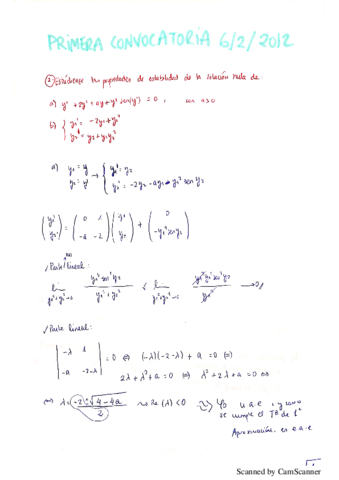 PRIMERA CONVOCATORIA 6/2/2012
② Estúdiense las propiedades de estabilidad de la solución nula de
a) y'' + 2y' + ay + y² sen(y') = 0, con a>0
b) { y₁' = -2y₁ + y₂³
y₂' = y₂ + y₁y₂²
a) y₁ = y
y₂ = y' → { y₁' = y₂
y₂' = -2y₂ - ay₁ - y₁² sen y₂
(y₁' y₂') = (0 1 -a -2)(y₁ y₂) + (0 -y₁² sen y₂)
✓ Parte no lineal:
lim y₁²+y₂²→0
✓ Parte lineal:
| -λ 1
-a -2-λ | = 0 ⇔ (-λ)(-2-λ) + a = 0 ⇔
2λ + λ² + a = 0 ⇔ λ² + 2λ + a = 0 ⇔
⇔ λ = -2 ± √4-4a / 2 → Re(λ) < 0 u.a.e. y como
se cumple el T⁰ de 1ª
Aproximación, es e.a.e
Scanned by CamScanner